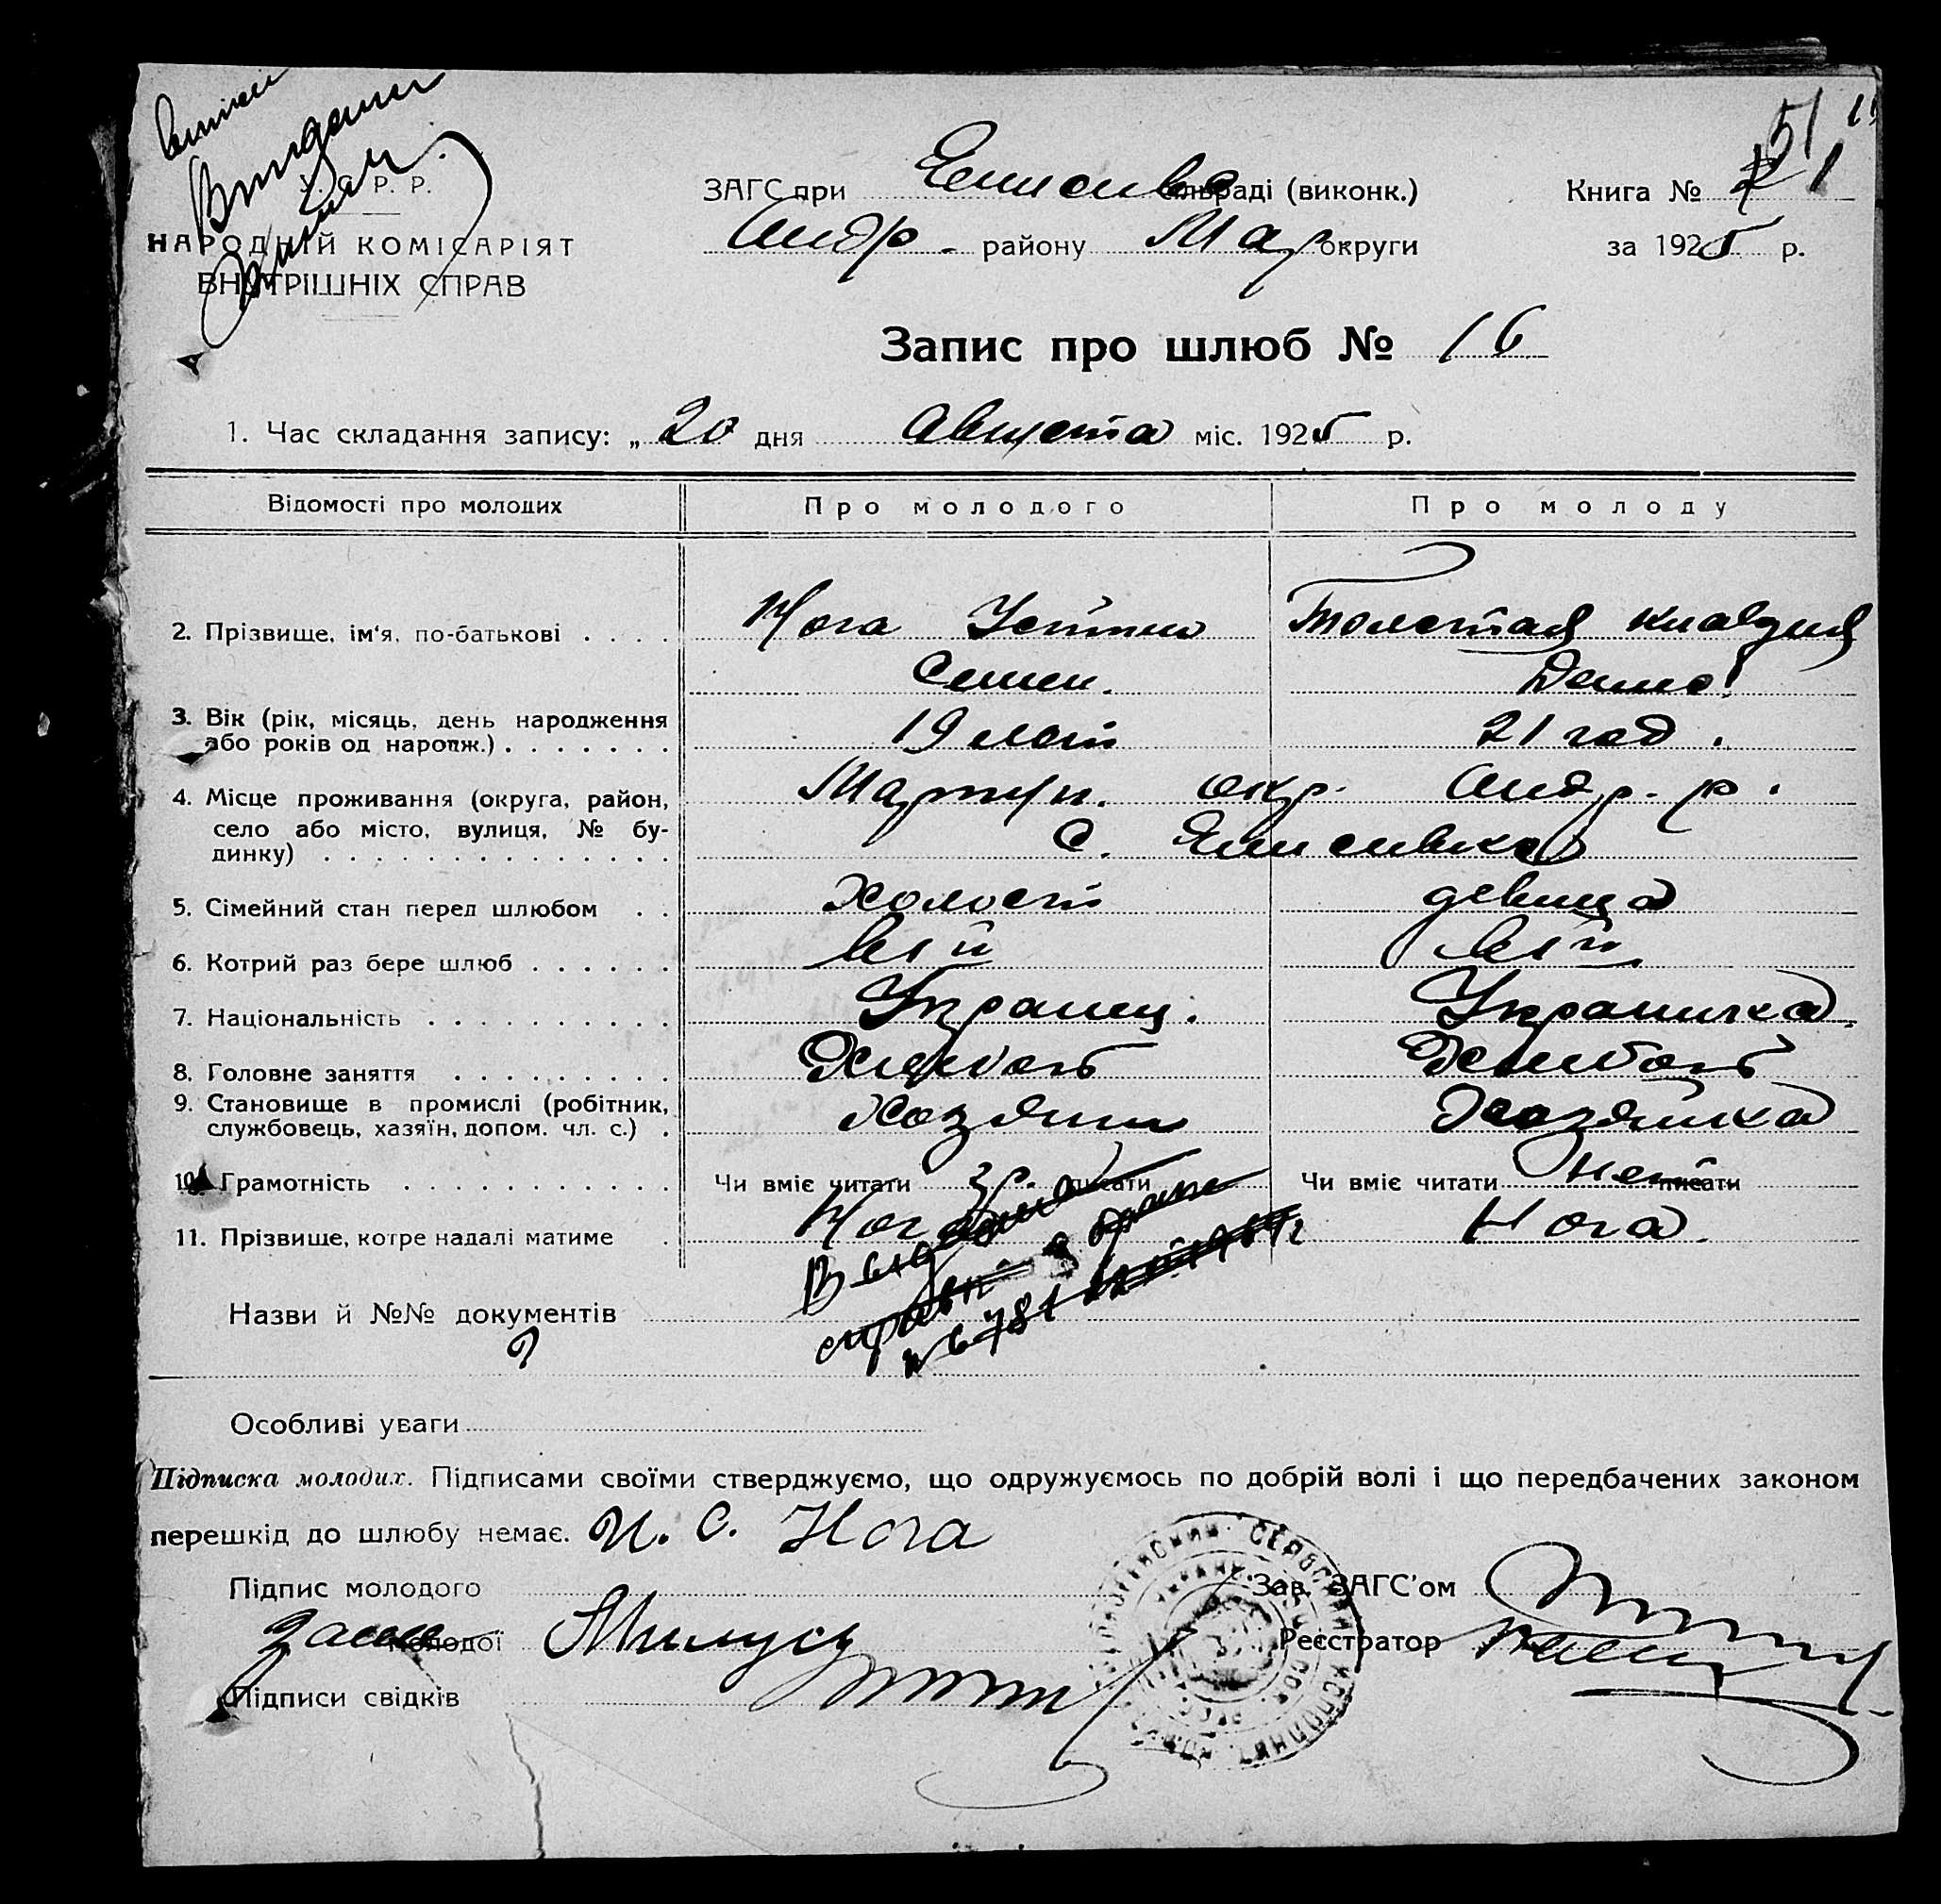 У. С. Р. Р.
НАРОДНІЙ КОМІСАРІЯТ
ВНУТРІШНІХ СПРАВ
ЗАГС при сільраді (виконк.)
Андр. району Мар округи
Книга № 1
за 1925 р.
51
Запис про шлюб № 16
1. Час складання запису: „ 20 дня Августа міс. 1925 р.
Відомості про молодих Про молодого Про молоду
2. Прізвище, ім'я, по-батькові . . . . Нога Устин Толстая Клавдия
Семен. Денис.
3. Вік (рік, місяць, день народження
або років од нарожж.) . . . . . . . 19 лет 21 год.
4. Місце проживання (округа, район, Мариуп. окр. Андр. р.
село або місто, вулиця, № бу-
динку) . . . . . . . . . . . . . . с. Елисивка
5. Сімейний стан перед шлюбом . . холост девица
6. Котрий раз бере шлюб . . . . . . 1й 1й
7. Національність . . . . . . . . . . Украинец. Украинка
8. Головне заняття . . . . . . . . . Хлебоп Хлебоп
9. Становище в промислі (робітник,
службовець, хазяїн, допом. чл. с.) . Хозяин Хозяйка
10. Грамотність . . . . . . . . . . . Чи вміє читати гр. писати Чи вміє читати нет писати
11. Прізвище, котре надалі матиме . Нога Нога
Назви й №№ документів
справка о браке
Особливі уваги
Підписка молодих. Підписами своїми стверджуємо, що одружуємось по добрій волі і що передбачених законом
перешкід до шлюбу немає. И. С. Нога
Підпис молодого
Зав. ЗАГС'ом
за молодої
Реєстратор
Підписи свідків